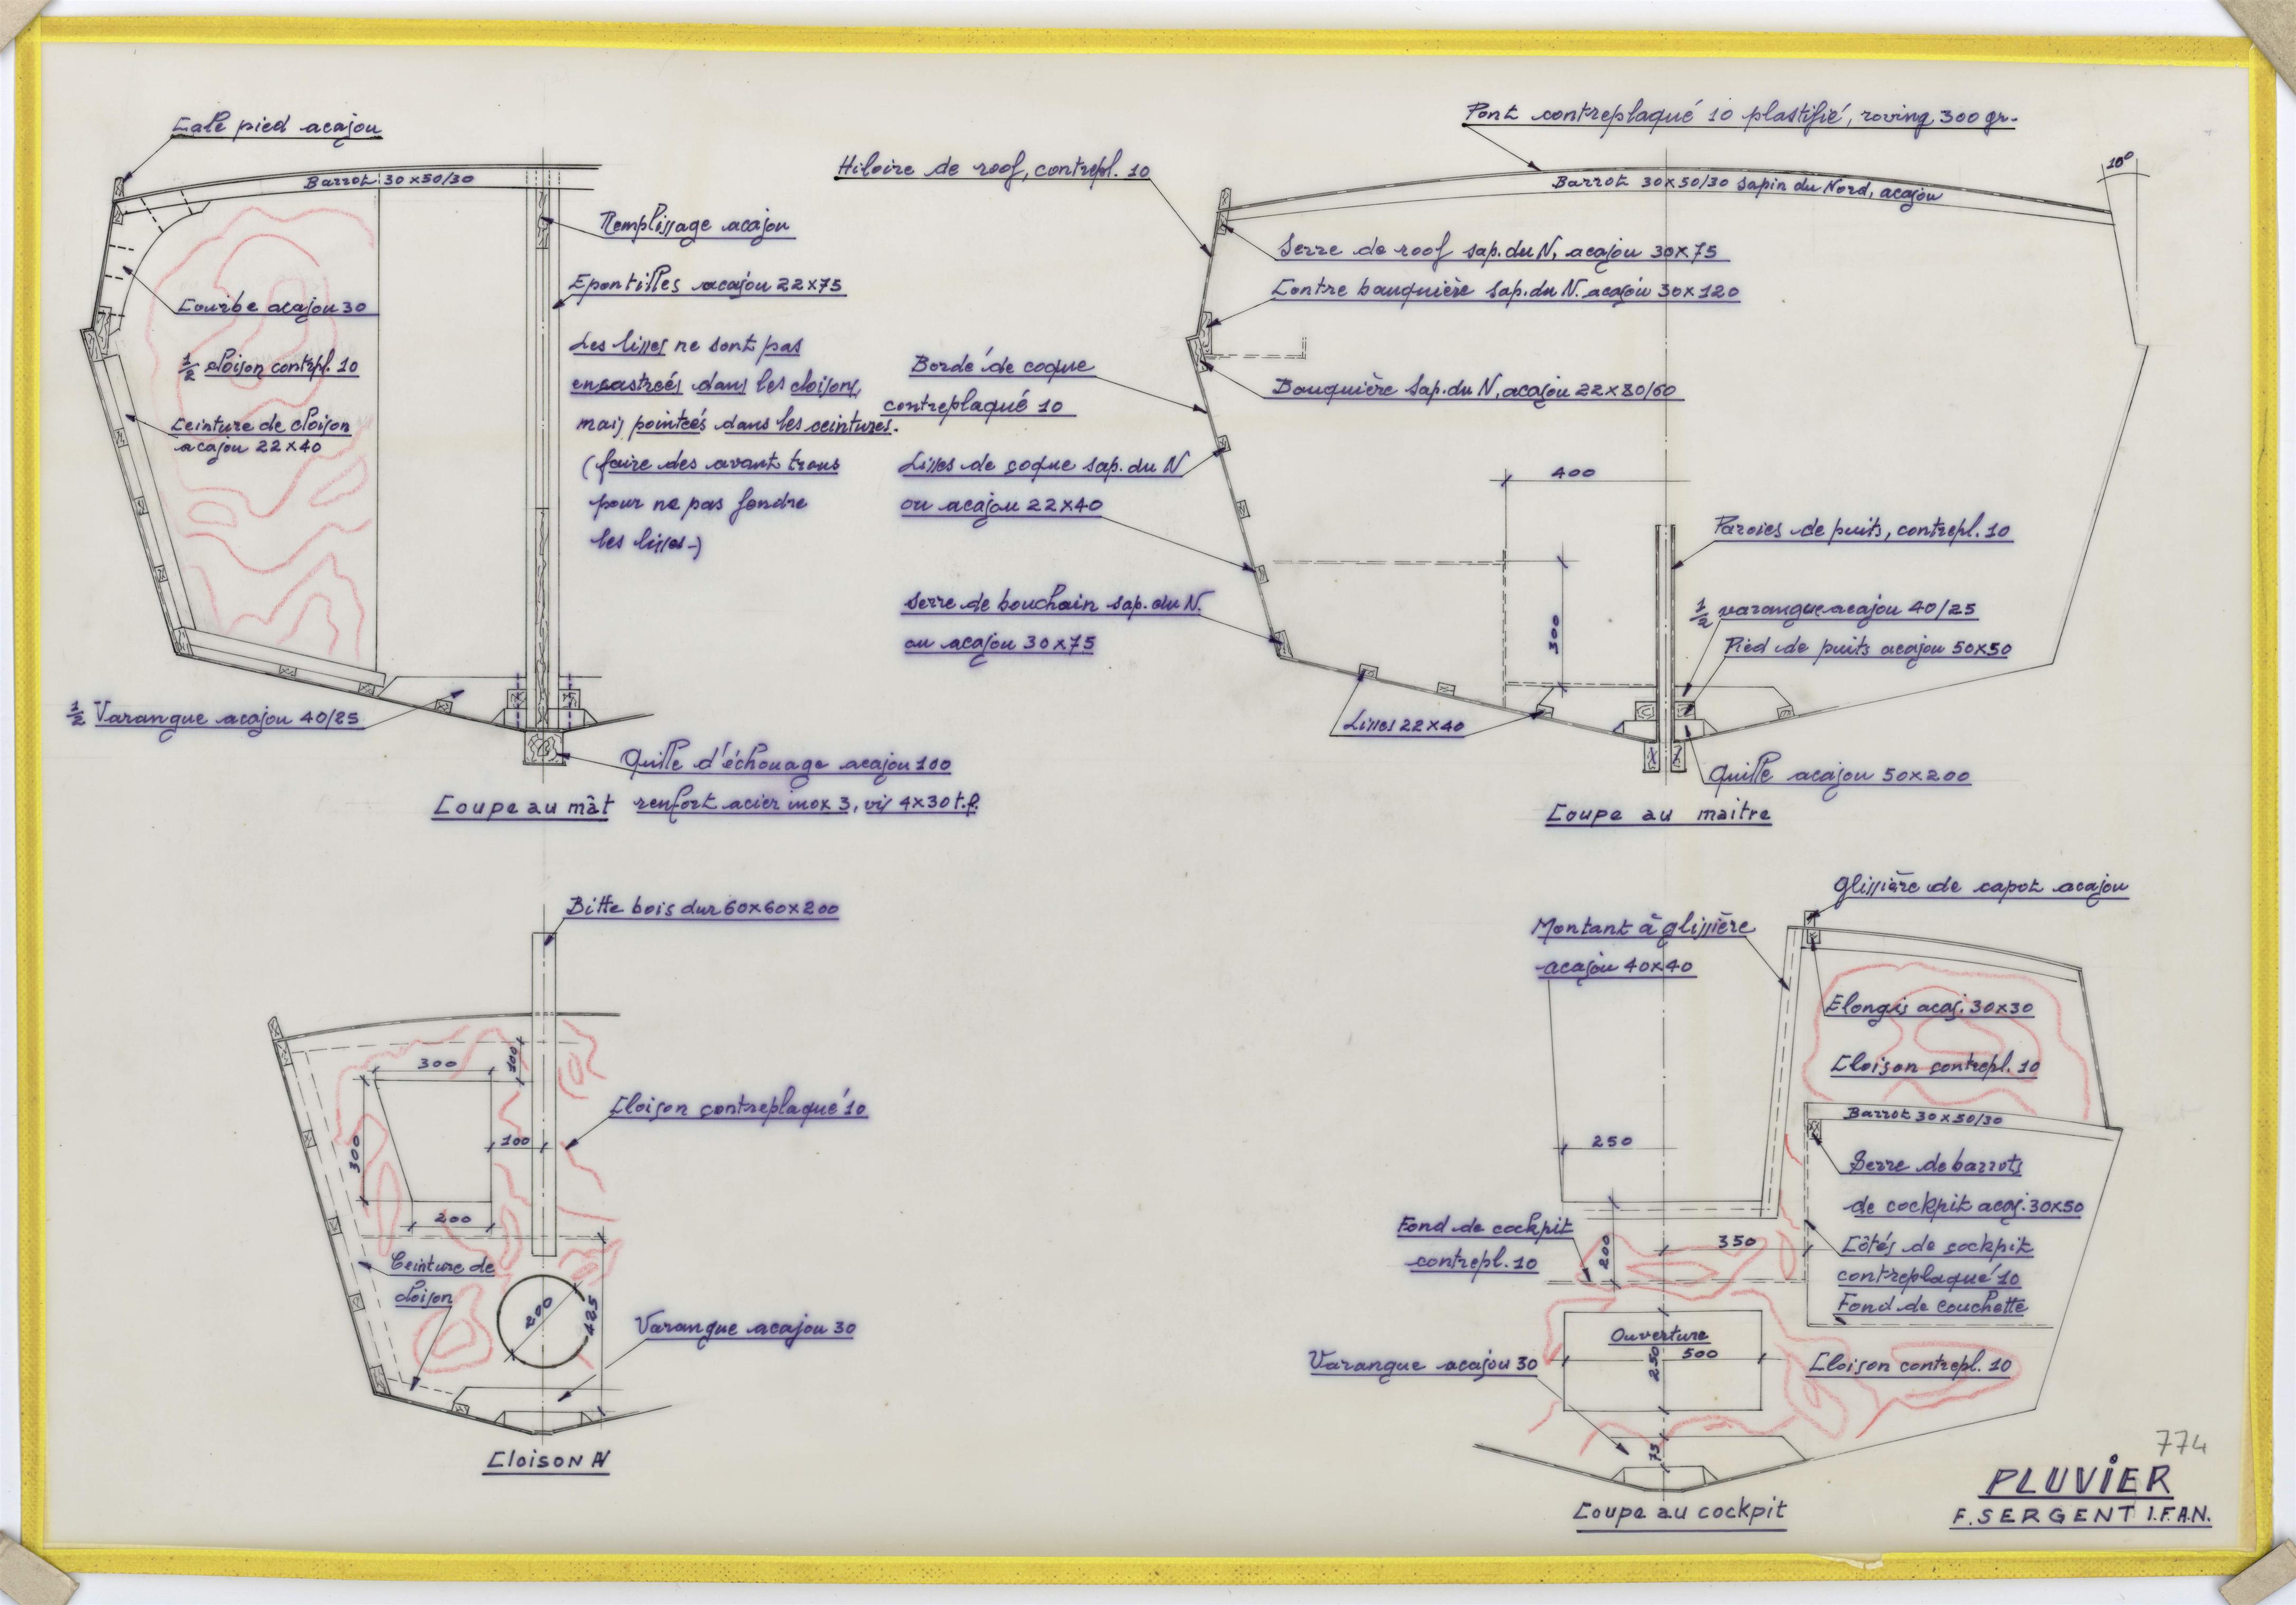 Cale pied acajou
Barrot 30x50/30
Remplissage acajou
Epontilles acajou 22x75
Courbe acajou 30
1/2 cloison contrepl. 10
Ceinture de cloison
acajou 22x40
Les lisses ne sont pas
encastrées dans les cloisons,
mais pointées dans les ceintures.
(faire des avant trous
pour ne pas fendre
les lisses.)
1/2 Varangue acajou 40/25
Quille d'échouage acajou 100
renfort acier inox 3, vis 4x30 t.f.
Coupe au mât
Pont contreplaqué 10 plastifié, roving 300 gr.
10°
Hiloire de roof, contrepl. 10
Barrot 30x50/30 sapin du Nord, acajou
Serre de roof sap. du N, acajou 30x75
Contre bauquière sap. du N. acajou 30x120
Bauquière sap. du N, acajou 22x80/60
Bordé de coque
contreplaqué 10
Lisses de coque sap. du N
ou acajou 22x40
Serre de bouchain sap. du N.
ou acajou 30x75
400
300
Paroies de puits, contrepl. 10
1/2 varangue acajou 40/25
Pied de puits acajou 50x50
Lisses 22x40
Quille acajou 50x200
Coupe au maitre
Bitte bois dur 60x60x200
300
100
300
100
200
Cloison contreplaqué 10
Ceinture de
cloison
200
425
Varangue acajou 30
Cloison AV
Glissière de capot acajou
Montant à glissière
acajou 40x40
Elongis acaj. 30x30
Cloison contrepl. 10
Barrot 30x50/30
250
Serre de barrots
de cockpit acaj. 30x50
Fond de cockpit
contrepl. 10
200
350
Côtés de cockpit
contreplaqué 10
Fond de couchette
Ouverture
500
250
Varangue acajou 30
Cloison contrepl. 10
75
Coupe au cockpit
774
PLUViER
F. SERGENT I.F.A.N.